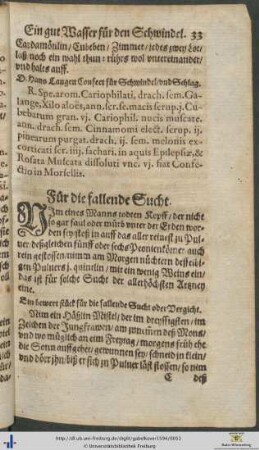 Ein gut Wasser für den Schwindel. 33
Cardamömlin / Cubeben / Zimmet / jedes zwey lot /
laß noch ein wahl thun: rührs wol untereinander /
vnd halts auff.
D. Hans Langen Confect für Schwindel / vnd Schlag.
R. Spe. arom. Cariophilati, drach. sem. Ga-
lange, Xilo aloës, ann. scr. se. macis scrup. j. Cu-
bebarum gran. vj. Cariophil. nucis muscatæ.
ann. drach. sem. Cinnamomi elect. scrup. ij.
pinearum purgat. drach. ij. sem. meloni ex-
corticati scr. iiij. sachari. in aquis Epilepsiæ, &
Rosata Muscata dissoluti unc. vj. fiat Confe-
ctio in Morsellis.
Für die fallende Sucht.
NIm eines Manns todten Kopff / der nicht
so gar faul oder mürb vnter der Erden wor-
den sey stoß in auff das aller reinest zu Pul-
uer deßgleichen fünff oder sechs Peonienkörner auch
rein gestossen / nim am Morgen nüchtern desselbi-
gen Puluers j. quintlin / mit ein wenig Weins ein /
das ist für solche Sucht der allerhöchsten Artzney
eine.
Ein bewert stück für die fallende Sucht oder Vergicht.
Nim ein Häßlin Mistel / der im dreyssigsten / im
Zeichen der Jungfrawen / am zunemen deß Mons /
vnd wo müglich an eim Freytag / morgens früh ehe
die Sonn auffgehet / gewunnen sey / schneid in klein /
vnd dörr jhn / biß er sich zu Puluer läst stossen / so nim
E deß
http://dl.ub.uni-freiburg.de/diglit/gabelkover1594/0053
© Universitätsbibliothek Freiburg